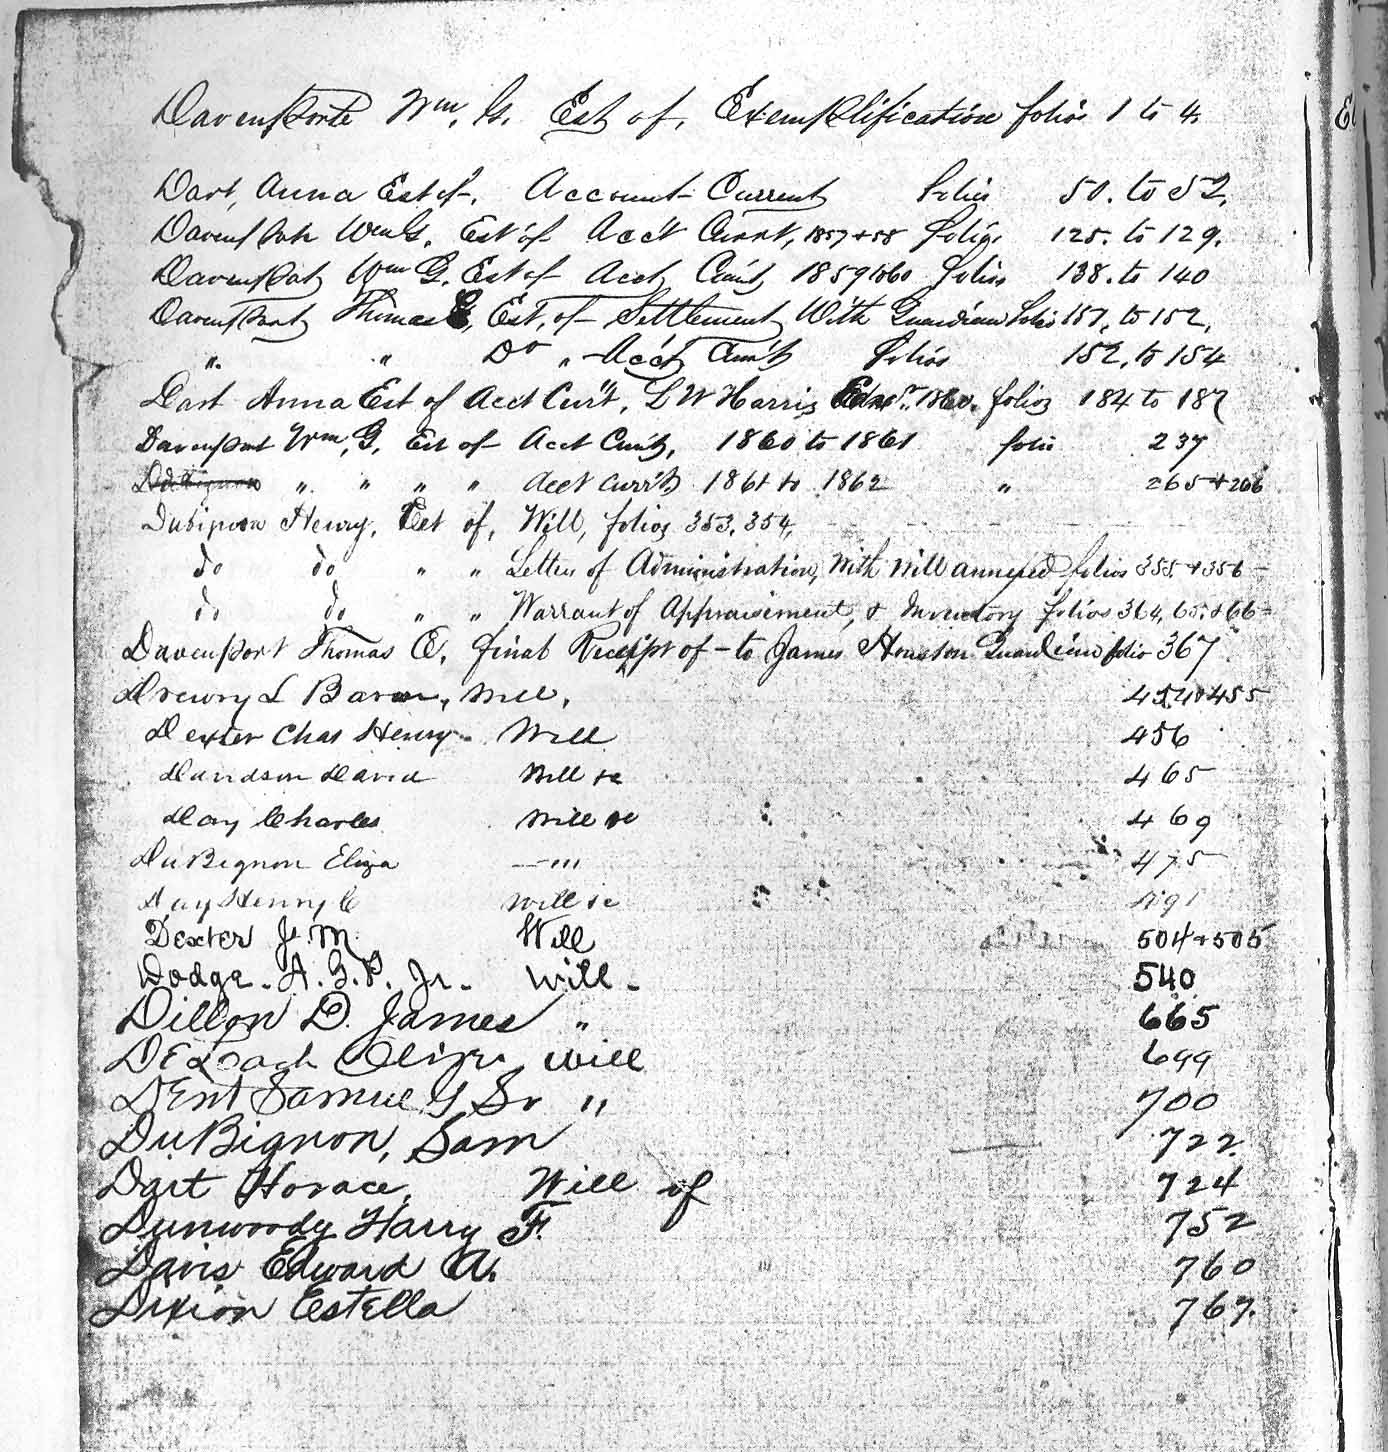 Davenporte Wm. G. Est of, Exemplification folios 1 to 4.
E
Dart, Anna Est of. Account Current folios 50. to 52.
Davenport Wm G. Est of Acct Curnt, 1857 + 58 folios 125. to 129.
Davenport Wm G. Est of Acct Curt 1859 to 60 folios 138. to 140
Davenport Thomas E, Est. of Settlement With Guardian folio 151, to 152,
" " Do " Acct Curt folios 152, to 154
Dart Anna Est of Acct Curt, L W Harris 1860. folios 184 to 187
Davenport Wm. G. Est of Acct Curt, 1860 to 1861 folio 237
DuBignon " " " " Acct Curr't 1861 to 1862 " 265 + 266
Dubignon Henry, Est of, Will, folios 353, 354,
do do " " Letters of Administration, With Will annexed folios 355 + 356 -
do do " " Warrant of Appraisement, & Inventory folios 364, 65, + 66 -
Davenport Thomas E, final Receipt of - to James Houston Guardian folio 367
Drewry L Baron, Will, 454 + 455
Dexter Chas Henry Will 456
Davidson David Will &c 465
Day Charles Will &c 469
DuBignon Eliza — "" 475
Day Henry C Will &c 491
Dexter J. M. Will 504 + 505
Dodge - A. G. P. Jr. - Will - 540
Dillon D. James " 665
DeLoach Eliza Will 699
Dent Samuel G Sr " 700
DuBignon, Sam 722
Dart Horace, Will of 724
Dunwoody Harry F. 752
Davis Edward A. 760
Dixion Estella 767.